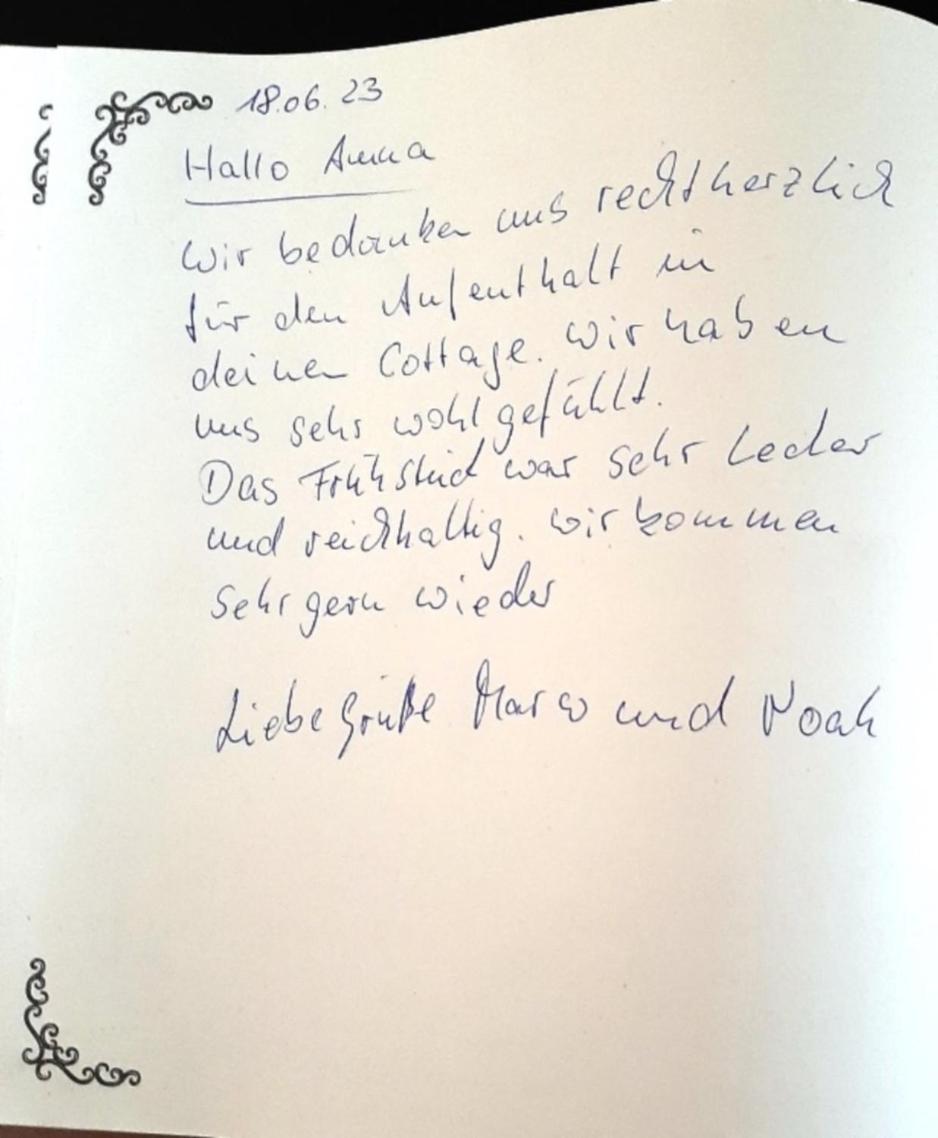 18.06.23
Hallo Anna
Wir bedanken uns recht herzlich
für den Aufenthalt in
deinen Cottage. Wir haben
uns sehr wohl gefühlt.
Das Frühstück war sehr Lecker
und reichhaltig. Wir kommen
sehr gern wieder
Liebe Grüße Marco und Noah